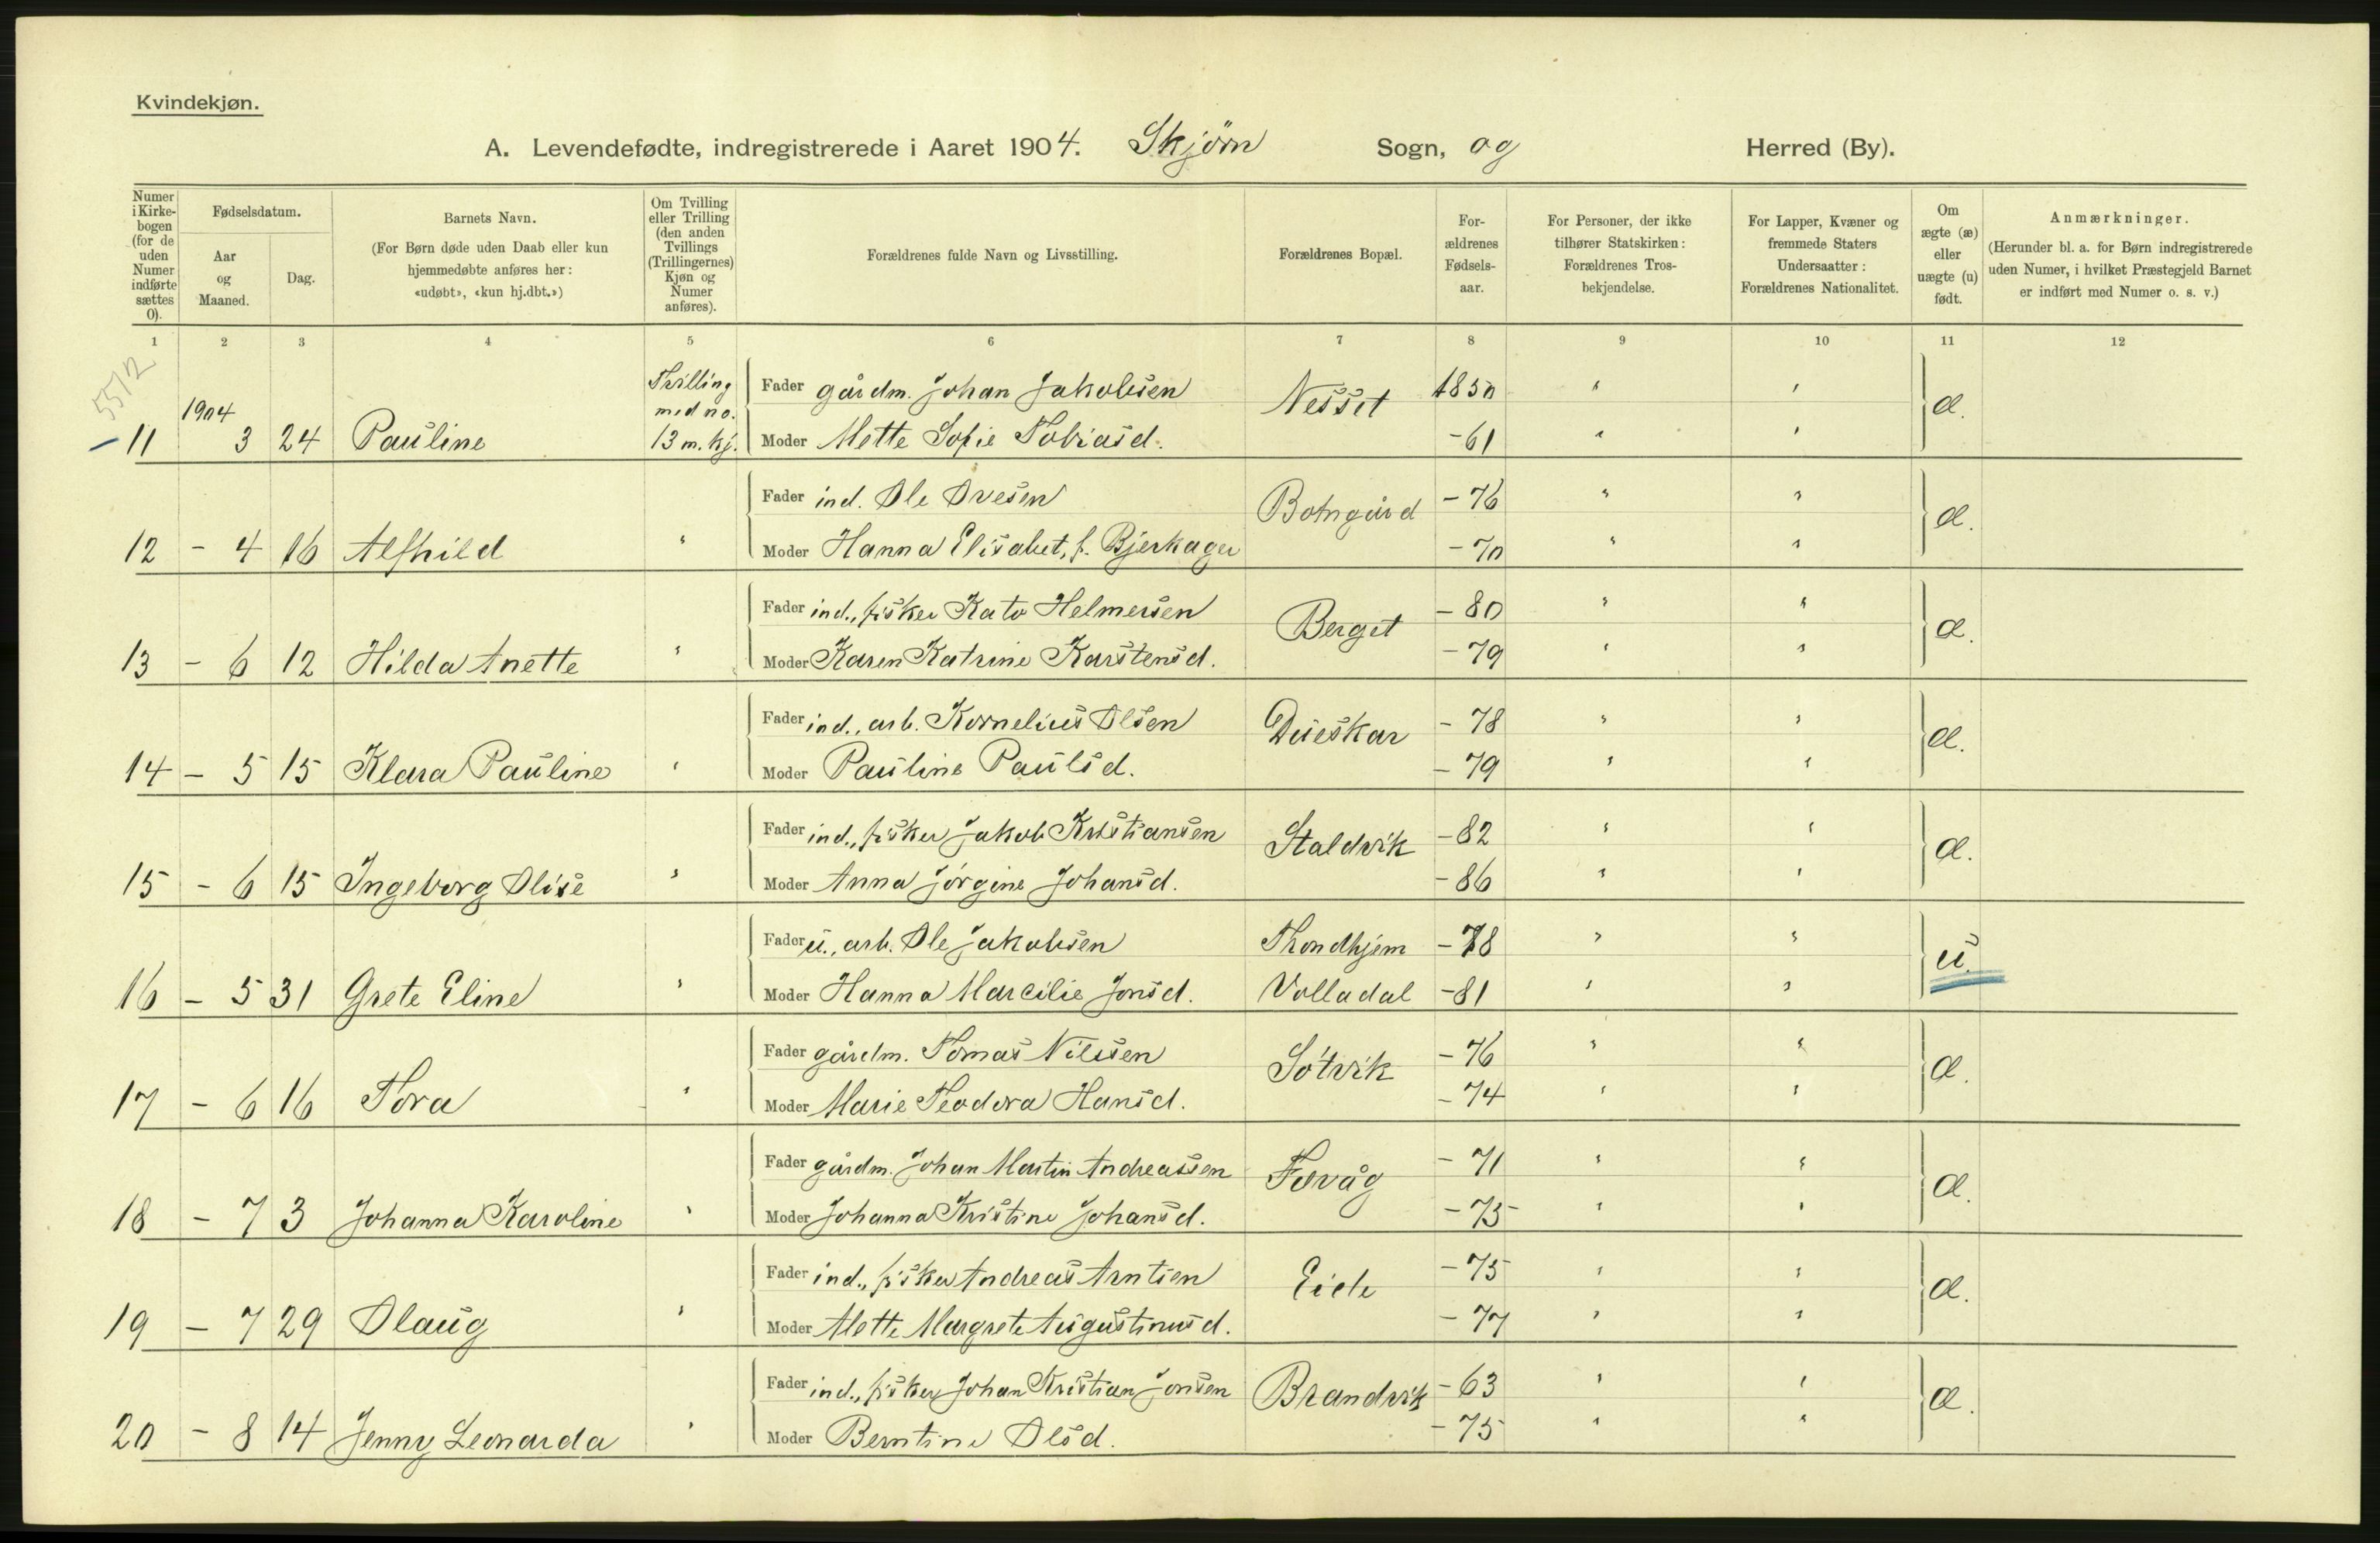 Kvindekjøn.
A. Levendefødte, indregistrerede i Aaret 1904. Skjörn Sogn, og Herred (By).
Numer i Kirkebogen (for de uden Numer indførte sættes 0).
Fødselsdatum.
Aar og Maaned.
Dag.
Barnets Navn.
(For Børn døde uden Daab eller kun hjemmedøbte anføres her: «udøbt», «kun hj.dbt.»)
Om Tvilling eller Trilling (den anden Tvillings (Trillingernes) Kjøn og Numer anføres).
Forældrenes fulde Navn og Livsstilling.
Forældrenes Bopæl.
Forældrenes Fødselsaar.
For Personer, der ikke tilhører Statskirken: Forældrenes Trosbekjendelse.
For Lapper, Kvæner og fremmede Staters Undersaatter: Forældrenes Nationalitet.
Om ægte (æ) eller uægte (u) født.
Anmærkninger.
(Herunder bl. a. for Børn indregistrerede uden Numer, i hvilket Præstegjeld Barnet er indført med Numer o. s. v.)
1 2 3 4 5 6 7 8 9 10 11 12
5512
Tvilling med no. 13 m. kj.
Fader gårdm. Johan Jakobsen Nesset 1850 " " æ.
11 1904 3 24 Pauline Moder Mette Sofie Tobiasd. -61 " "
Fader ind. Ole Ovesen Botngård -76 " " æ.
12 - 4 16 Alfhild " Moder Hanna Elisabet, f. Bjerkager -70 " "
Fader ind., fisker Kato Helmersen Berget -80 " " æ.
13 - 6 12 Hilda Anette " Moder Karen Katrine Karstensd. -79 " "
Fader ind., arb. Kornelius Olsen Dueskar -78 " " æ.
14 - 5 15 Klara Pauline " Moder Pauline Paulsd. -79 " "
Fader ind., fisker Jakob Kristiansen Staldvik -82 " " æ.
15 - 6 15 Ingeborg Olise " Moder Anna Jörgine Johansd. -86 " "
Fader u., arb. Ole Jakobsen Trondhjem -78 " " u.
16 - 5 31 Grete Eline " Moder Hanna Marcilie Jonsd. Volladal -81 " "
Fader gårdm. Tomas Nilssen Sötvik -76 " " æ.
17 - 6 16 Tora " Moder Marie Teodora Hansd. -74 " "
Fader gårdm. Johan Martin Andreassen Fevåg -71 " " æ.
18 - 7 3 Johanna Karoline " Moder Johanna Kristine Johansd. -75 " "
Fader ind., fisker Andreas Arntsen Eide -75 " " æ.
19 - 7 29 Olaug " Moder Mette Margrete Augustinusd. -77 " "
Fader ind., fisker Johan Kristian Jonsen Brandvik -63 " " æ.
20 - 8 14 Jenny Leonarda " Moder Berntine Olsd. -75 " "